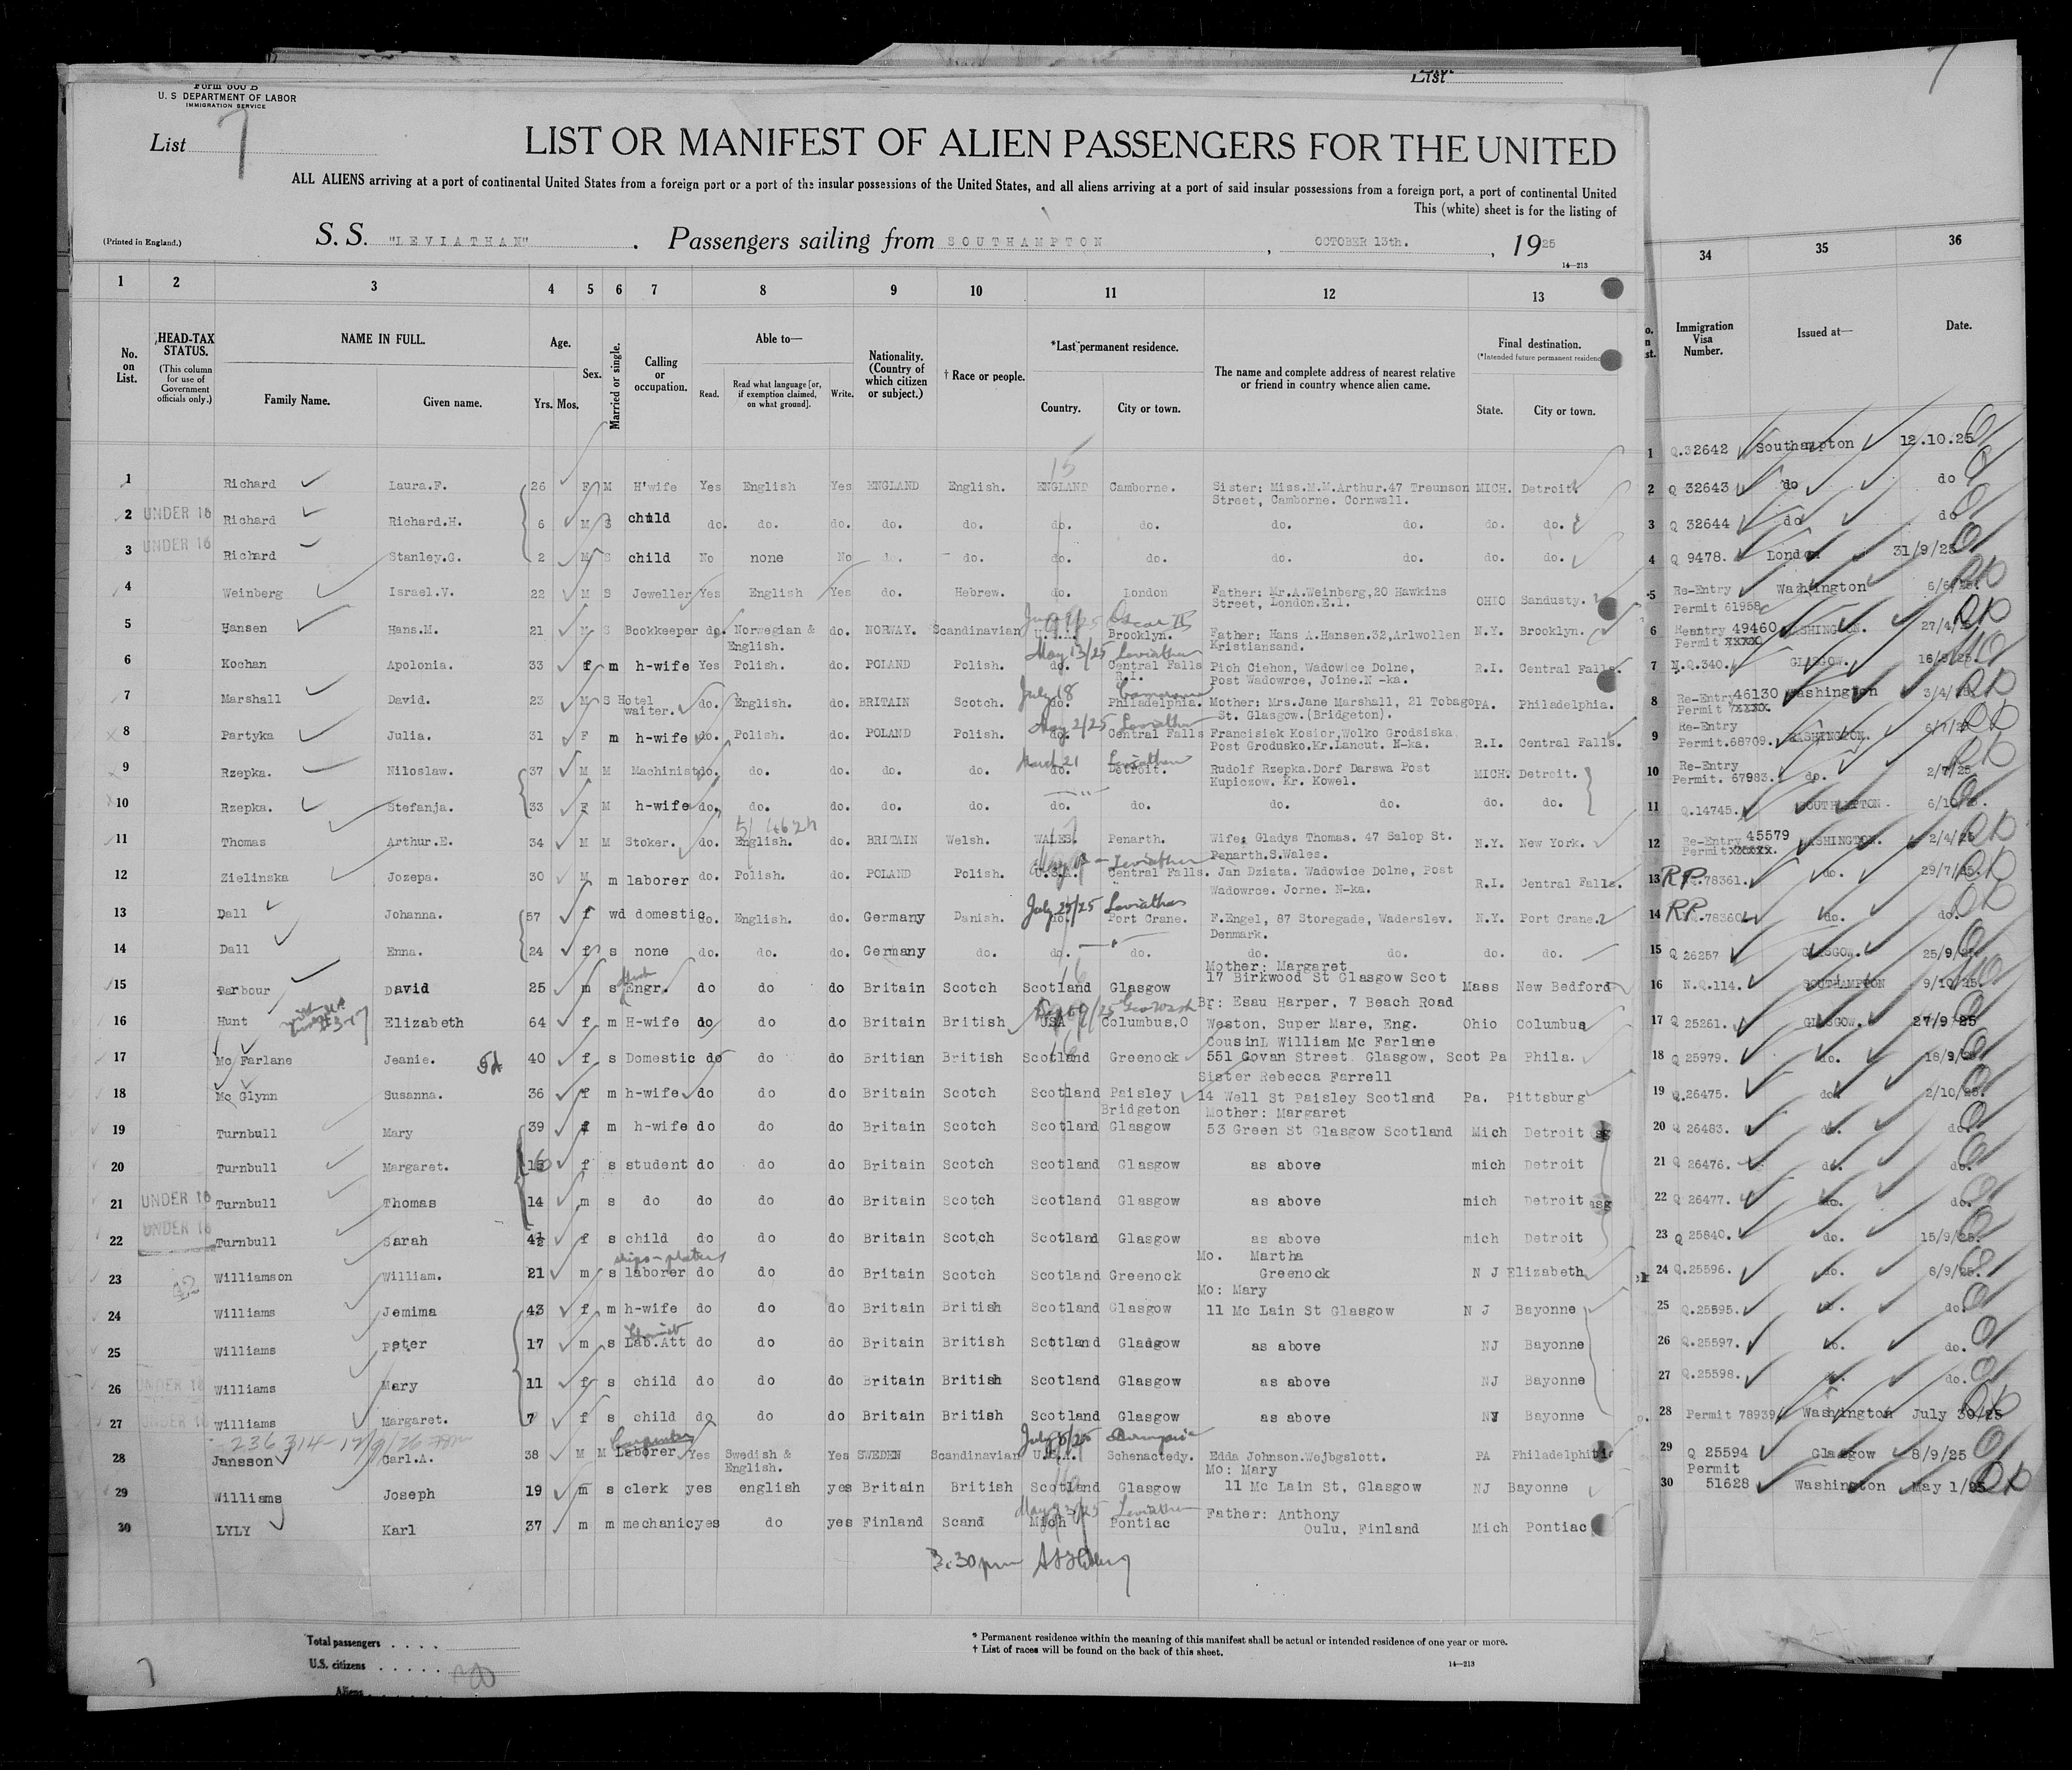 List
7
Form 500 B
U. S DEPARTMENT OF LABOR
IMMIGRATION SERVICE
List 7
LIST OR MANIFEST OF ALIEN PASSENGERS FOR THE UNITED
ALL ALIENS arriving at a port of continental United States from a foreign port or a port of the insular possessions of the United States, and all aliens arriving at a port of said insular possessions from a foreign port, a port of continental United
This (white) sheet is for the listing of
(Printed in England.) S. S. "LEVIATHAN" . Passengers sailing from SOUTHAMPTON , OCTOBER 13th. , 1925
14—213
1 2 3 4 5 6 7 8 9 10 11 12 13 34 35 36
No. on List. HEAD-TAX STATUS. (This column for use of Government officials only.) NAME IN FULL. Family Name. Given name. Age. Yrs. Mos. Sex. Married or single. Calling or occupation. Able to— Read. Read what language [or, if exemption claimed, on what ground]. Write. Nationality. (Country of which citizen or subject.) † Race or people. *Last permanent residence. Country. City or town. The name and complete address of nearest relative or friend in country whence alien came. Final destination. (*Intended future permanent residence State. City or town. Immigration Visa Number. Issued at— Date.
15
1 Richard Laura.F. 26 F M H'wife Yes English Yes ENGLAND English. ENGLAND Camborne. Sister: Miss.M.M.Arthur.47 Treunson Street, Camborne. Cornwall. MICH. Detroit.
2 UNDER 16 Richard Richard.H. 6 M S child do. do. do. do. do. do. do. do. do. do. do.
3 UNDER 16 Richard Stanley.G. 2 M S child No none No do. do. do. do. do. do. do. do.
4 Weinberg Israel.V. 22 M S Jeweller Yes English Yes do. Hebrew. do. London Father: Mr.A.Weinberg,20 Hawkins Street, London.E.1. OHIO Sandusty.
5 Hansen Hans.M. 21 M S Bookkeeper do. Norwegian & English. do. NORWAY. Scandinavian U.S.A. Brooklyn. Father: Hans A.Hansen.32,Arlwollen Kristiansand. N.Y. Brooklyn.
May 13/25 Leviathan
6 Kochan Apolonia. 33 f m h-wife Yes Polish. do. POLAND Polish. do. Central Falls R.I. Pioh Ciehon, Wadowice Dolne, Post Wadowrce, Joine.N -ka. R.I. Central Falls.
July 18
7 Marshall David. 23 M S Hotel waiter. do. English. do. BRITAIN Scotch. do. Philadelphia. Mother: Mrs.Jane Marshall, 21 Tobago St. Glasgow.(Bridgeton). PA. Philadelphia.
May 2/25 Leviathan
8 Partyka Julia. 31 F m h-wife do. Polish. do. POLAND Polish. do. Central Falls Francisiek Kosior,Wolko Grodsiska, Post Grodusko.Kr.Lancut. N-ka. R.I. Central Falls.
March 21 Leviathan
9 Rzepka. Niloslaw. 37 M M Machinist do. do. do. do. do. do. Detroit. Rudolf Rzepka.Dorf Darswa Post Kupiczow. Kr. Kowel. MICH. Detroit.
10 Rzepka. Stefanja. 33 F M h-wife do. do. do. do. do. do. do. do. do. do. do.
11 Thomas Arthur.E. 34 M M Stoker. do. English. do. BRITAIN Welsh. WALES Penarth. Wife: Gladys Thomas. 47 Salop St. Penarth.S.Wales. N.Y. New York.
Leviathan
12 Zielinska Jozepa. 30 M m laborer do. Polish. do. POLAND Polish. U.S.A. Central Falls. Jan Dziata. Wadowice Dolne, Post Wadowrce. Jorne. N-ka. R.I. Central Falls.
July 25/25 Leviathan
13 Dall Johanna. 57 f wd domestic do. English. do. Germany Danish. do. Port Crane. F.Engel, 87 Storegade, Waderslev. Denmark. N.Y. Port Crane.
14 Dall Enna. 24 f s none do. do. do. Germany do. do. do. do. do. do. do.
15 Barbour David 25 m s Engr. do do do Britain Scotch Scotland Glasgow Mother: Margaret 17 Birkwood St Glasgow Scot Mass New Bedford
16 Hunt Elizabeth 64 f m H-wife do do do Britain British USA Columbus.O Br: Esau Harper, 7 Beach Road Weston, Super Mare, Eng. Ohio Columbus
17 Mc Farlane Jeanie. 40 f s Domestic do do do Britian British Scotland Greenock CousinL William Mc Farlane 551 Govan Street Glasgow, Scot Pa Phila.
18 Mc Glynn Susanna. 36 f m h-wife do do do Britain Scotch Scotland Paisley Sister Rebecca Farrell 14 Well St Paisley Scotland Pa. Pittsburg
19 Turnbull Mary 39 f m h-wife do do do Britain Scotch Scotland Bridgeton Glasgow Mother: Margaret 53 Green St Glasgow Scotland Mich Detroit
20 Turnbull Margaret. 16 f s student do do do Britain Scotch Scotland Glasgow as above mich Detroit
21 UNDER 16 Turnbull Thomas 14 m s do do do do Britain Scotch Scotland Glasgow as above mich Detroit
22 UNDER 16 Turnbull Sarah 4½ f s child do do do Britain Scotch Scotland Glasgow as above mich Detroit
23 Williamson William. 21 m s ships-platers laborer do do do Britain Scotch Scotland Greenock Mo. Martha Greenock N J Elizabeth
24 Williams Jemima 43 f m h-wife do do do Britain British Scotland Glasgow Mo: Mary 11 Mc Lain St Glasgow N J Bayonne
25 Williams Peter 17 m s Lab.Att do do do Britain British Scotland Glasgow as above NJ Bayonne
26 UNDER 16 Williams Mary 11 f s child do do do Britain British Scotland Glasgow as above NJ Bayonne
27 UNDER 16 Williams Margaret. 7 f s child do do do Britain British Scotland Glasgow as above NJ Bayonne
28 Jansson Carl.A. 38 M M Carpenter Laborer Yes Swedish & English. Yes SWEDEN Scandinavian U.S.A. Schenactedy. Edda Johnson.Wejbgslott. PA Philadelphia
29 Williams Joseph 19 m s clerk yes english yes Britain British Scotland Glasgow Mo: Mary 11 Mc Lain St, Glasgow NJ Bayonne
30 LYLY Karl 37 m m mechanic yes do yes Finland Scand Mich Pontiac Father: Anthony Oulu, Finland Mich Pontiac
3.30pm
Total passengers . . . .
U.S. citizens . . . . .
Aliens
* Permanent residence within the meaning of this manifest shall be actual or intended residence of one year or more.
† List of races will be found on the back of this sheet.
14—213
1 Q.32642 Southampton 12.10.25
2 Q 32643 do do
3 Q 32644 do do
4 Q 9478. London 31/9/25
5 Re-Entry Permit 61958 Washington
6 Reentry Permit 49460 WASHINGTON.
7 N.Q.340. GLASGOW.
8 Re-Entry Permit 46130 Washington
9 Re-Entry Permit.68709. WASHINGTON.
10 Re-Entry Permit. 67983. do.
11 Q.14745. SOUTHAMPTON.
12 Re-Entry Permit 45579 WASHINGTON.
13 RP 78361. do.
14 RP 78360 do. do.
15 Q 26257 GLASGOW. 25/9/25.
16 N.Q.114. SOUTHAMPTON 9/10/25.
17 Q 25261. GLASGOW. 27/9/25
18 Q 25979. do. 18/9/25.
19 Q.26475. do. 2/10/25.
20 Q 26483. do. do.
21 Q 26476. do. do.
22 Q 26477. do. do.
23 Q 25840. do. 15/9/25.
24 Q.25596. do. 8/9/25.
25 Q.25595. do.
26 Q.25597. do. do.
27 Q.25598. do.
28 Permit 78939 Washington July 30/25
29 Q 25594 Glasgow 8/9/25
30 Permit 51628 Washington May 1/25